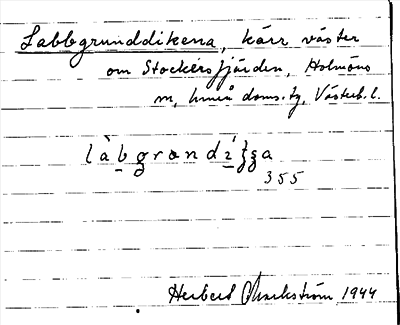 Labbgrunddikena, kärr väster
om Stockersfjärden, Holmöns
sn, Umeå doms.tg, Västerb.l.
làbgrandíʒʒa
355
Herbert Markström 1944